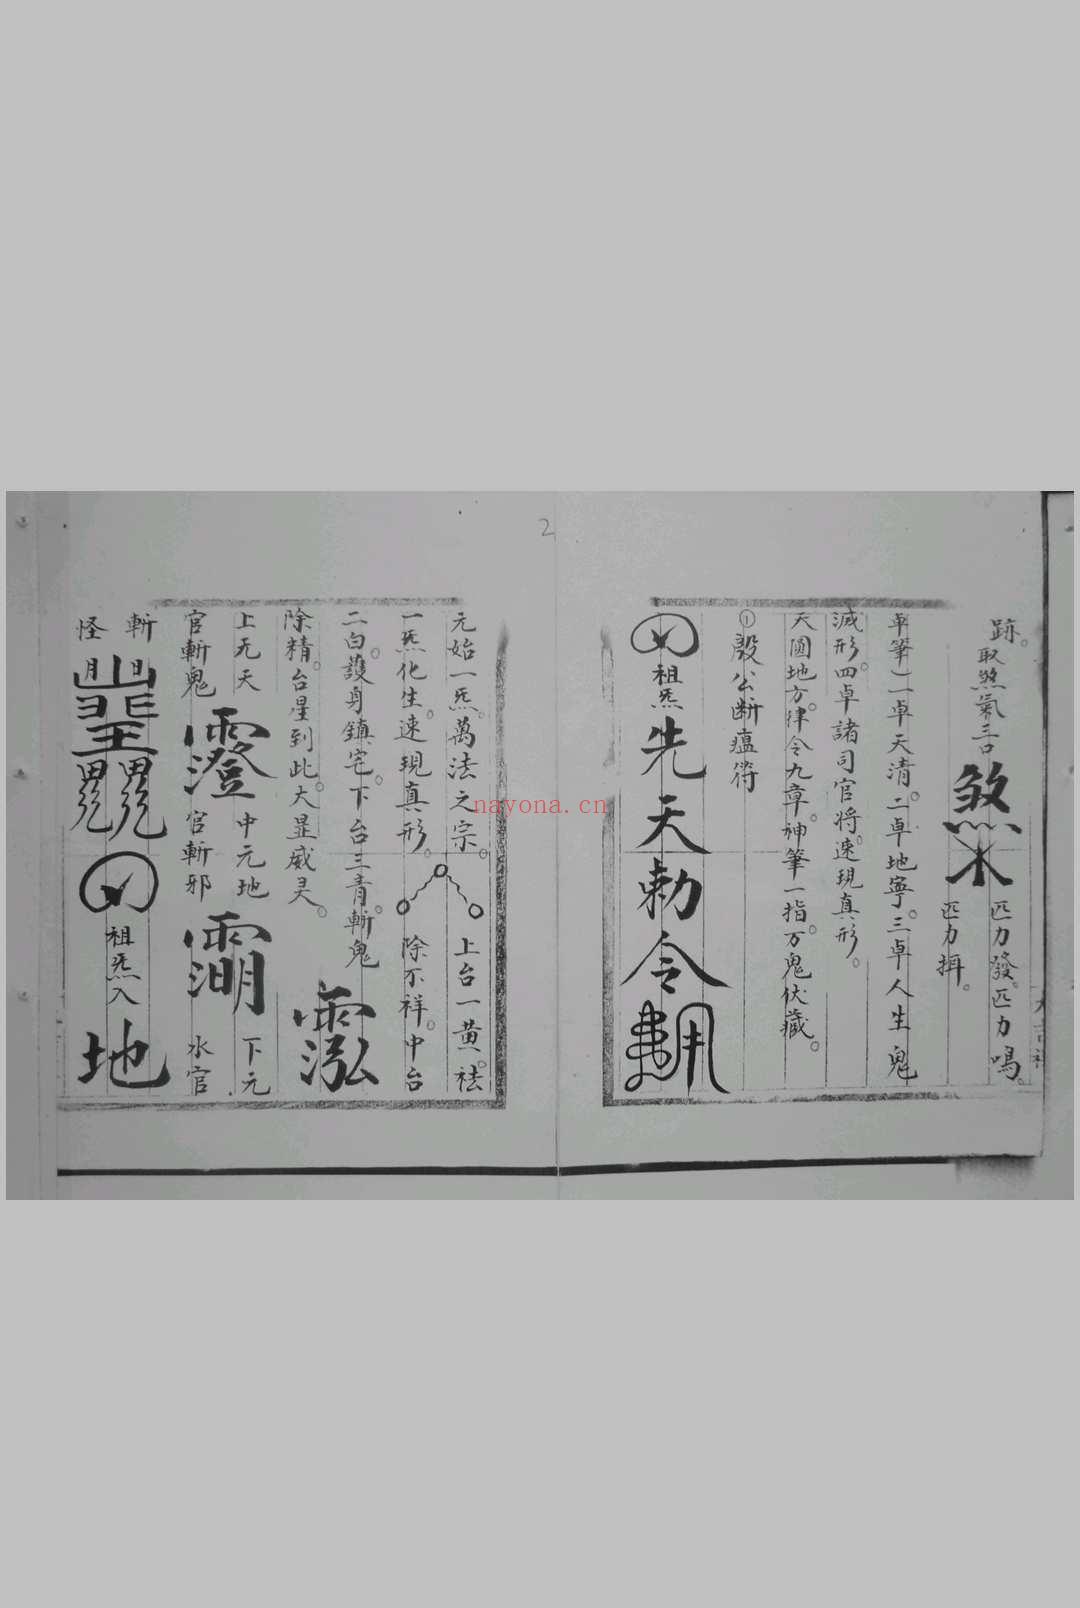 2
跡。取煞氣三口 煞 匹力發。匹力鳴。
匹力摒。
卓筆）一卓天清。二卓地寧。三卓人生 鬼
滅形。四卓諸司官將。速現真形。
天圓地方。律令九章。神筆一指。万鬼伏藏。
①殷公断瘟符
祖炁 先天勅令
元始一炁。萬法之宗。 上台一黄。祛
一炁化生。速現真形。 除不祥。中台
二白。護身鎮宅。下台三青。斬鬼
除精。台星到此。大显威灵。
上元天 中元地 下元
官斬鬼 官斬邪 水官
斬
怪 日 月 祖炁入 地
nayona.cn